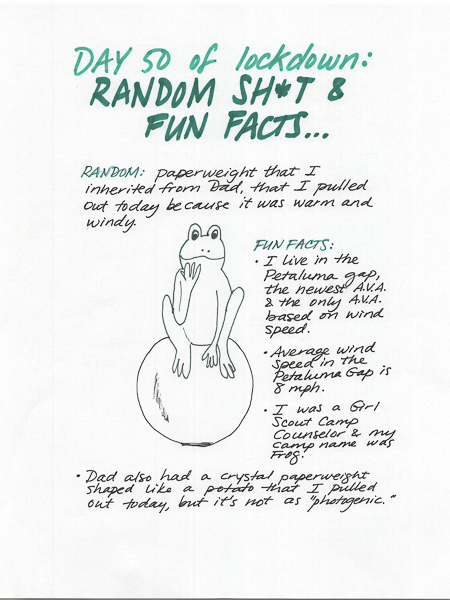 DAY 50 of lockdown:
RANDOM SH*T &
FUN FACTS...
RANDOM: paperweight that I
inherited from Dad, that I pulled
out today because it was warm and
windy.
FUN FACTS:
• I live in the
Petaluma gap,
the newest A.V.A.
& the only A.V.A.
based on wind
speed.
• Average wind
speed in the
Petaluma Gap is
8 mph.
• I was a Girl
Scout Camp
Counselor & my
camp name was
Frog.
• Dad also had a crystal paperweight
shaped like a potato that I pulled
out today, but it's not as "photogenic."